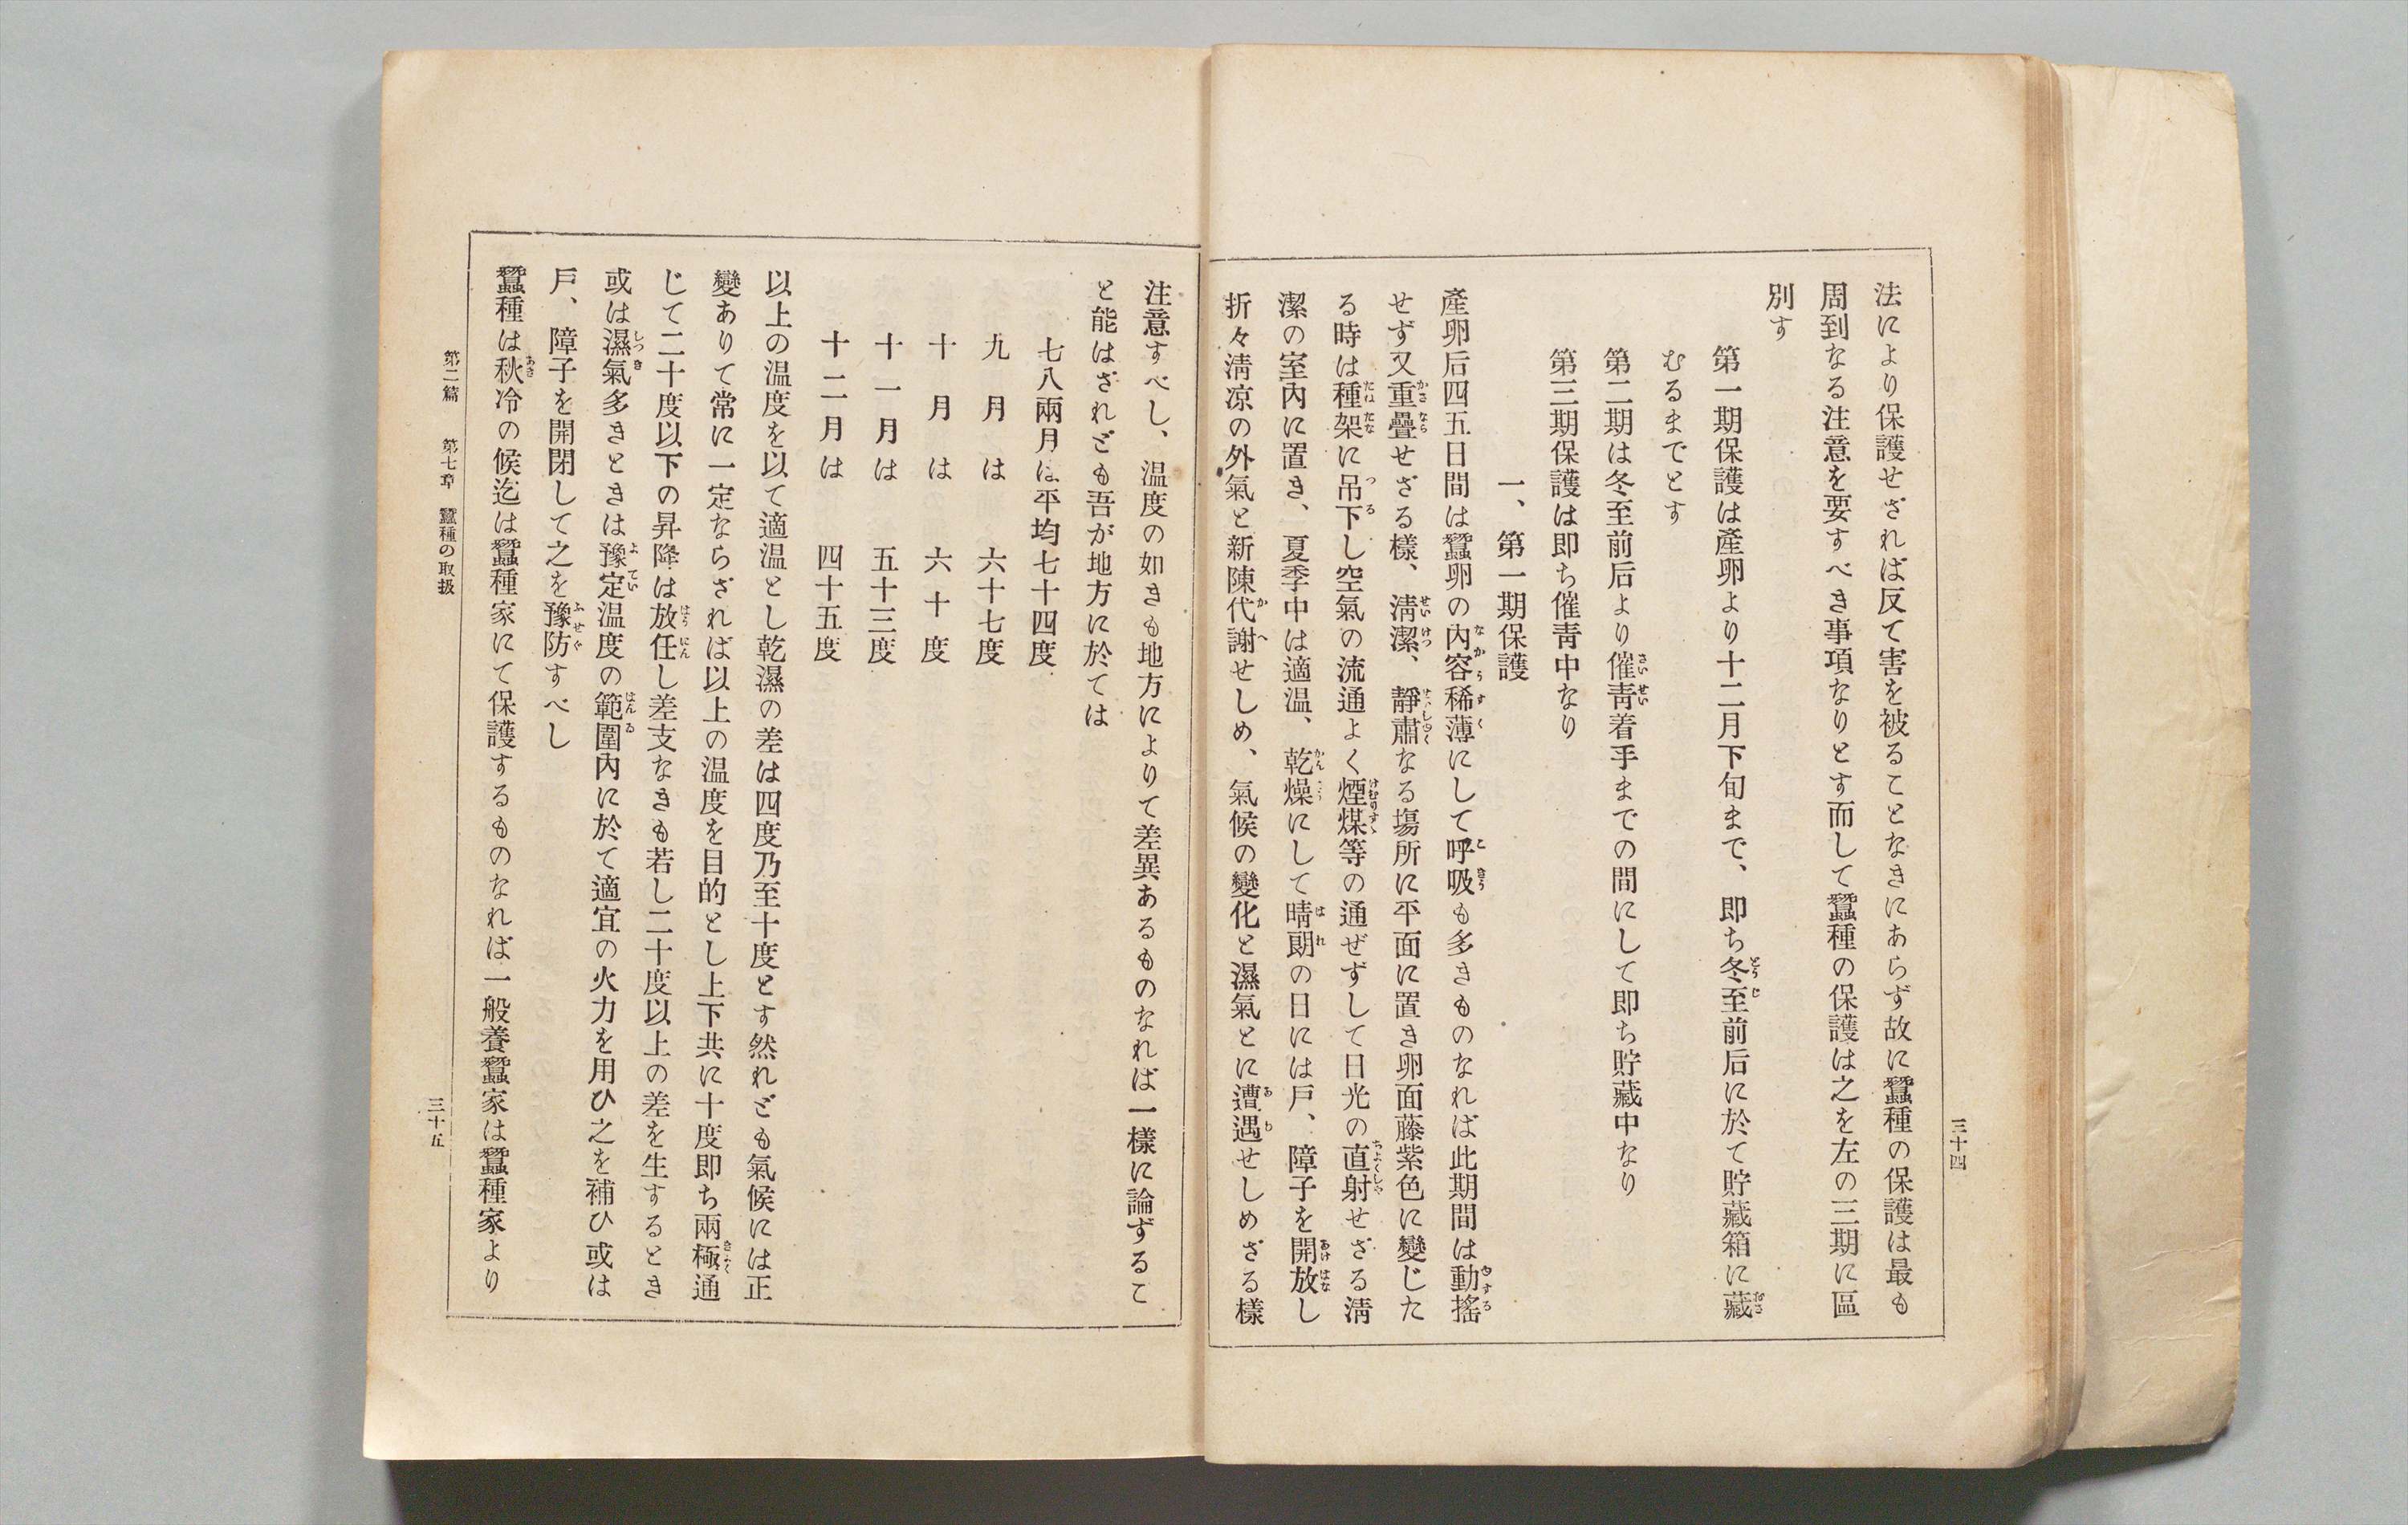 三十四
法により保護せされば反て害を被ることなきにあらず故に蠶種の保護は最も
周到なる注意を要すべき事項なりとす而して蠶種の保護は之を左の三期に區
別す
第一期保護は產卵より十二月下旬まで、即ち冬至前后に於て貯藏箱に藏
むるまでとす
第二期は冬至前后より催靑着手までの間にして即ち貯藏中なり
第三期保護は即ち催靑中なり
一、第一期保護
產卵后四五日間は蠶卵の內容稀薄にして呼吸も多きものなれば此期間は動搖
せず又重疊せざる樣、淸潔、靜肅なる塲所に平面に置き卵面藤紫色に變じた
る時は種架に吊下し空氣の流通よく煙煤等の通ぜずして日光の直射せざる淸
潔の室內に置き、夏季中は適温、乾燥にして晴朗の日には戶、障子を開放し
折々淸凉の外氣と新陳代謝せしめ、氣候の變化と濕氣とに遭遇せしめざる樣
注意すべし、温度の如きも地方によりて差異あるものなれば一樣に論ずるこ
と能はざれども吾が地方に於ては
七八兩月は平均七十四度
九月は 六十七度
十月は 六十度
十一月は 五十三度
十二月は 四十五度
以上の温度を以て適温とし乾濕の差は四度乃至十度とす然れども氣候には正
變ありて常に一定ならざれば以上の温度を目的とし上下共に十度即ち兩極通
じて二十度以下の昇降は放任し差支なきも若し二十度以上の差を生するとき
或は濕氣多きときは豫定温度の範圍內に於て適宜の火力を用ひ之を補ひ或は
戶、障子を開閉して之を豫防すべし
蠶種は秋冷の候迄は蠶種家にて保護するものなれば一般養蠶家は蠶種家より
第二篇 第七章 蠶種の取扱
三十五